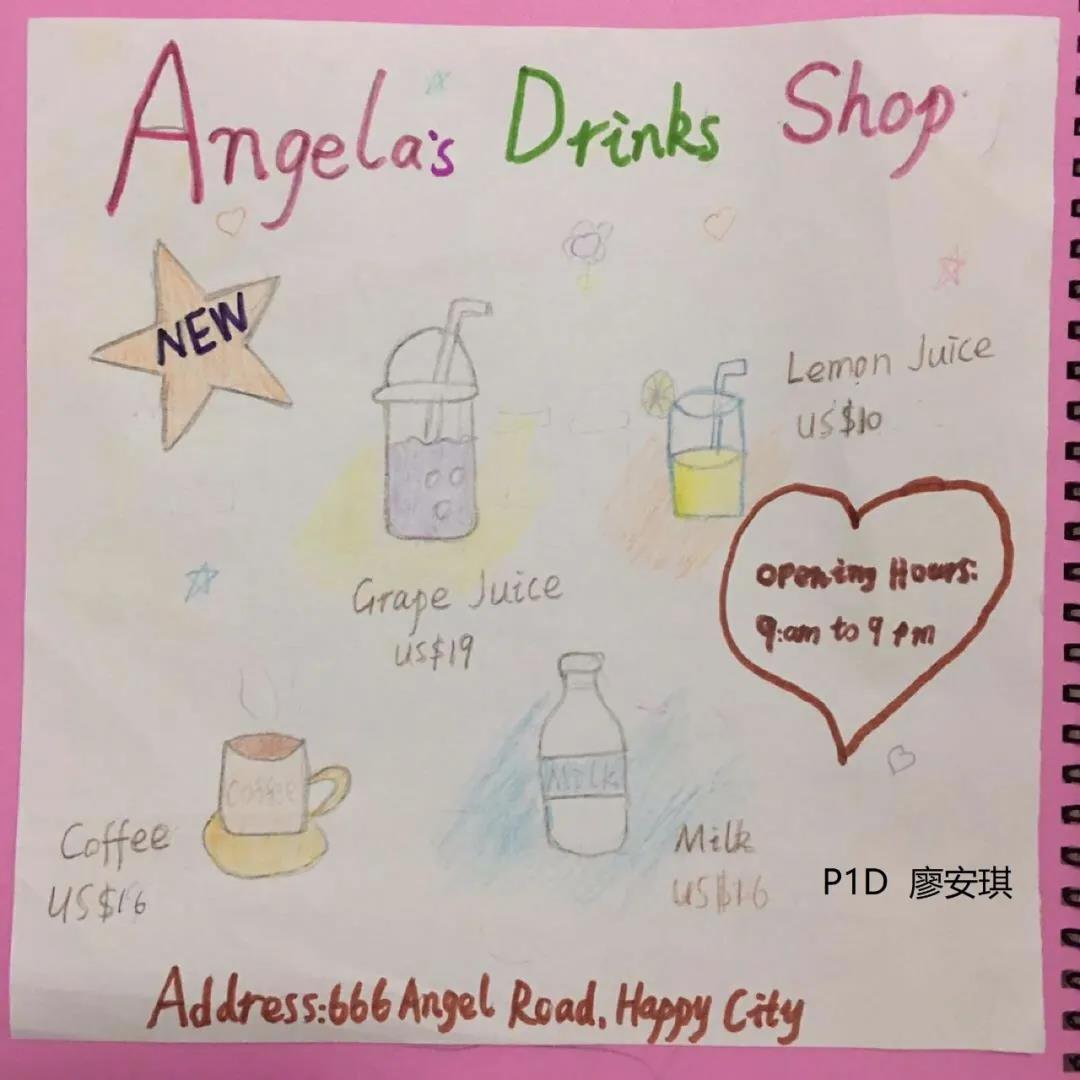 Angela's Drinks Shop
NEW
Lemon Juice
US$10
Opening Hours:
9:am to 9 pm
Grape Juice
US$19
Coffee
Coffee
US$16
Milk
Milk
US$16
P1D 廖安琪
Address:666 Angel Road, Happy City